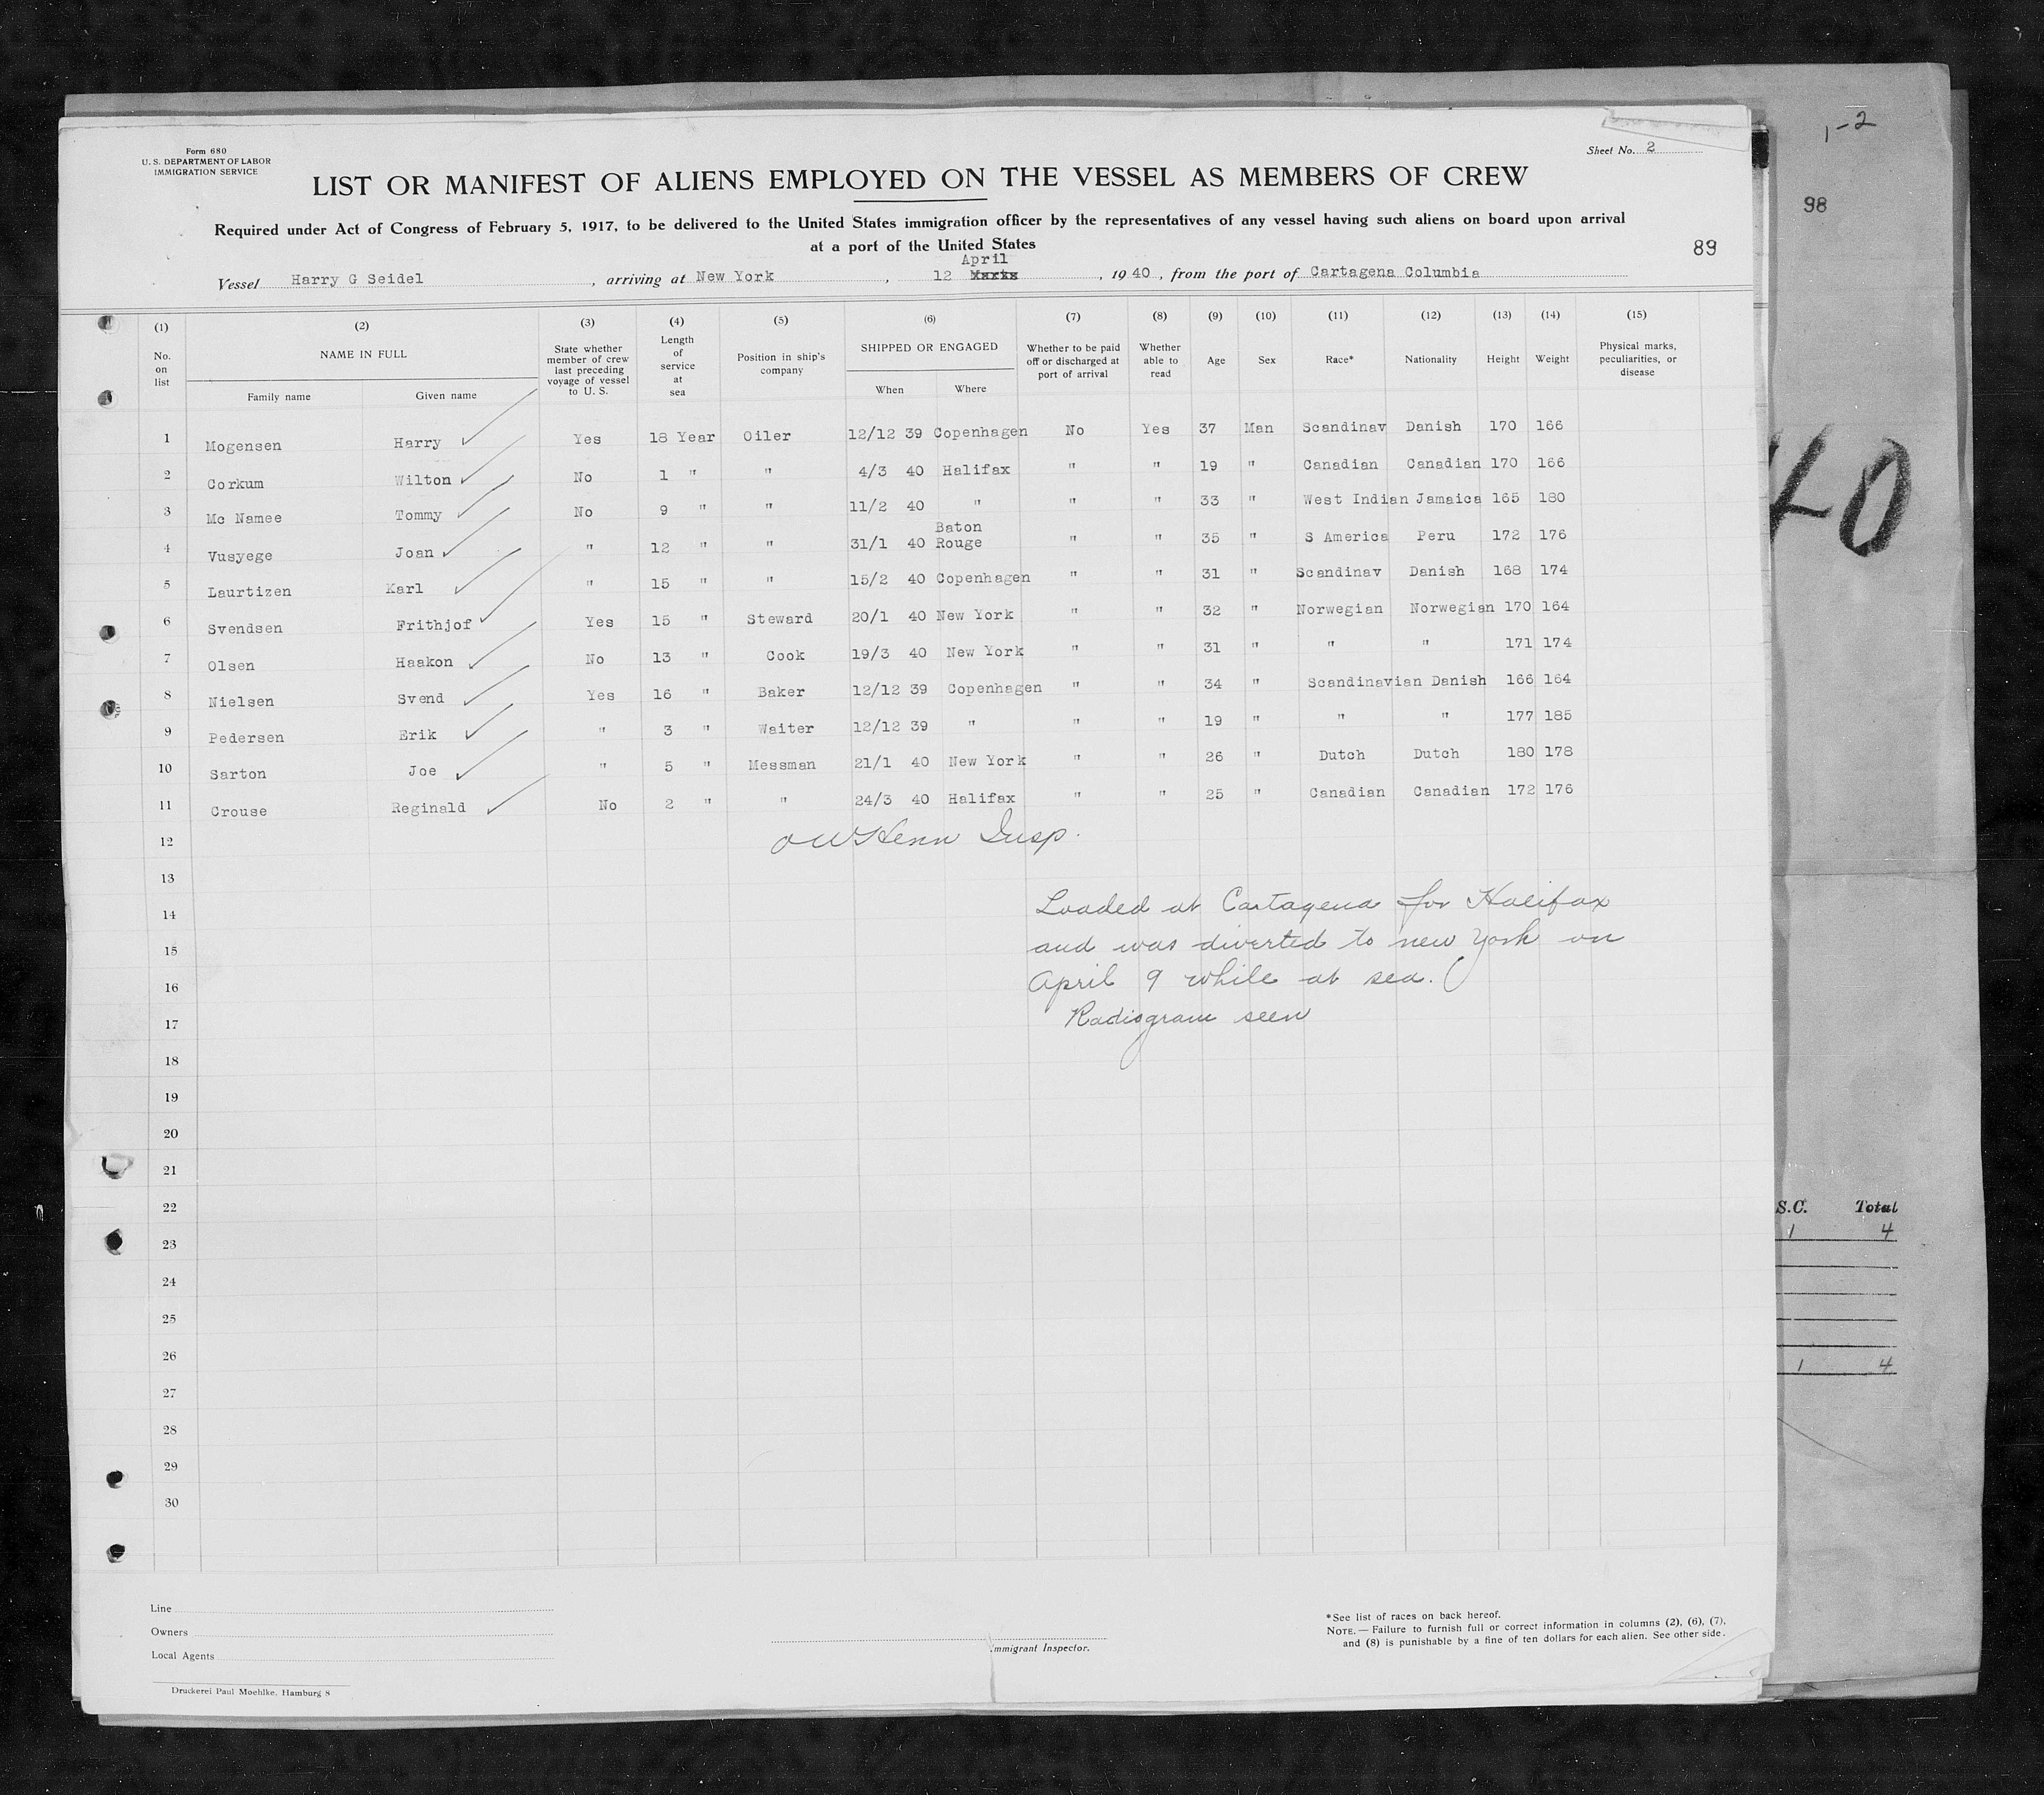 1-2
98
40
Form 680
U. S. DEPARTMENT OF LABOR
IMMIGRATION SERVICE
Sheet No. 2
LIST OR MANIFEST OF ALIENS EMPLOYED ON THE VESSEL AS MEMBERS OF CREW
Required under Act of Congress of February 5, 1917, to be delivered to the United States immigration officer by the representatives of any vessel having such aliens on board upon arrival
at a port of the United States
89
April
Vessel Harry G Seidel, arriving at New York, 12, 1940, from the port of Cartagena Columbia
(1) (2) (3) (4) (5) (6) (7) (8) (9) (10) (11) (12) (13) (14) (15)
No. on list NAME IN FULL Family name Given name State whether member of crew last preceding voyage of vessel to U. S. Length of service at sea Position in ship's company SHIPPED OR ENGAGED When Where Whether to be paid off or discharged at port of arrival Whether able to read Age Sex Race* Nationality Height Weight Physical marks, peculiarities, or disease
1 Mogensen Harry Yes 18 Year Oiler 12/12 39 Copenhagen No Yes 37 Man Scandinav Danish 170 166
2 Corkum Wilton No 1 " " 4/3 40 Halifax " " 19 " Canadian Canadian 170 166
3 Mc Namee Tommy No 9 " " 11/2 40 " " " 33 " West Indian Jamaica 165 180
4 Vusyege Joan " 12 " " 31/1 40 Baton Rouge " " 35 " S America Peru 172 176
5 Laurtizen Karl " 15 " " 15/2 40 Copenhagen " " 31 " Scandinav Danish 168 174
6 Svendsen Frithjof Yes 15 " Steward 20/1 40 New York " " 32 " Norwegian Norwegian 170 164
7 Olsen Haakon No 13 " Cook 19/3 40 New York " " 31 " " " 171 174
8 Nielsen Svend Yes 16 " Baker 12/12 39 Copenhagen " " 34 " Scandinavian Danish 166 164
9 Pedersen Erik " 3 " Waiter 12/12 39 " " " 19 " " " 177 185
10 Sarton Joe " 5 " Messman 21/1 40 New York " " 26 " Dutch Dutch 180 178
11 Crouse Reginald No 2 " " 24/3 40 Halifax " " 25 " Canadian Canadian 172 176
12 Insp.
13
14 Loaded at Cartagena for Halifax
15 and was diverted to new york on
16 April 9 while at sea.
17 Radiogram seen
18
19
20
21
22
23
24
25
26
27
28
29
30
S.C. Total
1 4
1 4
Line
Owners
Local Agents
Immigrant Inspector.
*See list of races on back hereof.
NOTE.— Failure to furnish full or correct information in columns (2), (6), (7),
and (8) is punishable by a fine of ten dollars for each alien. See other side.
Druckerei Paul Moehlke, Hamburg 8